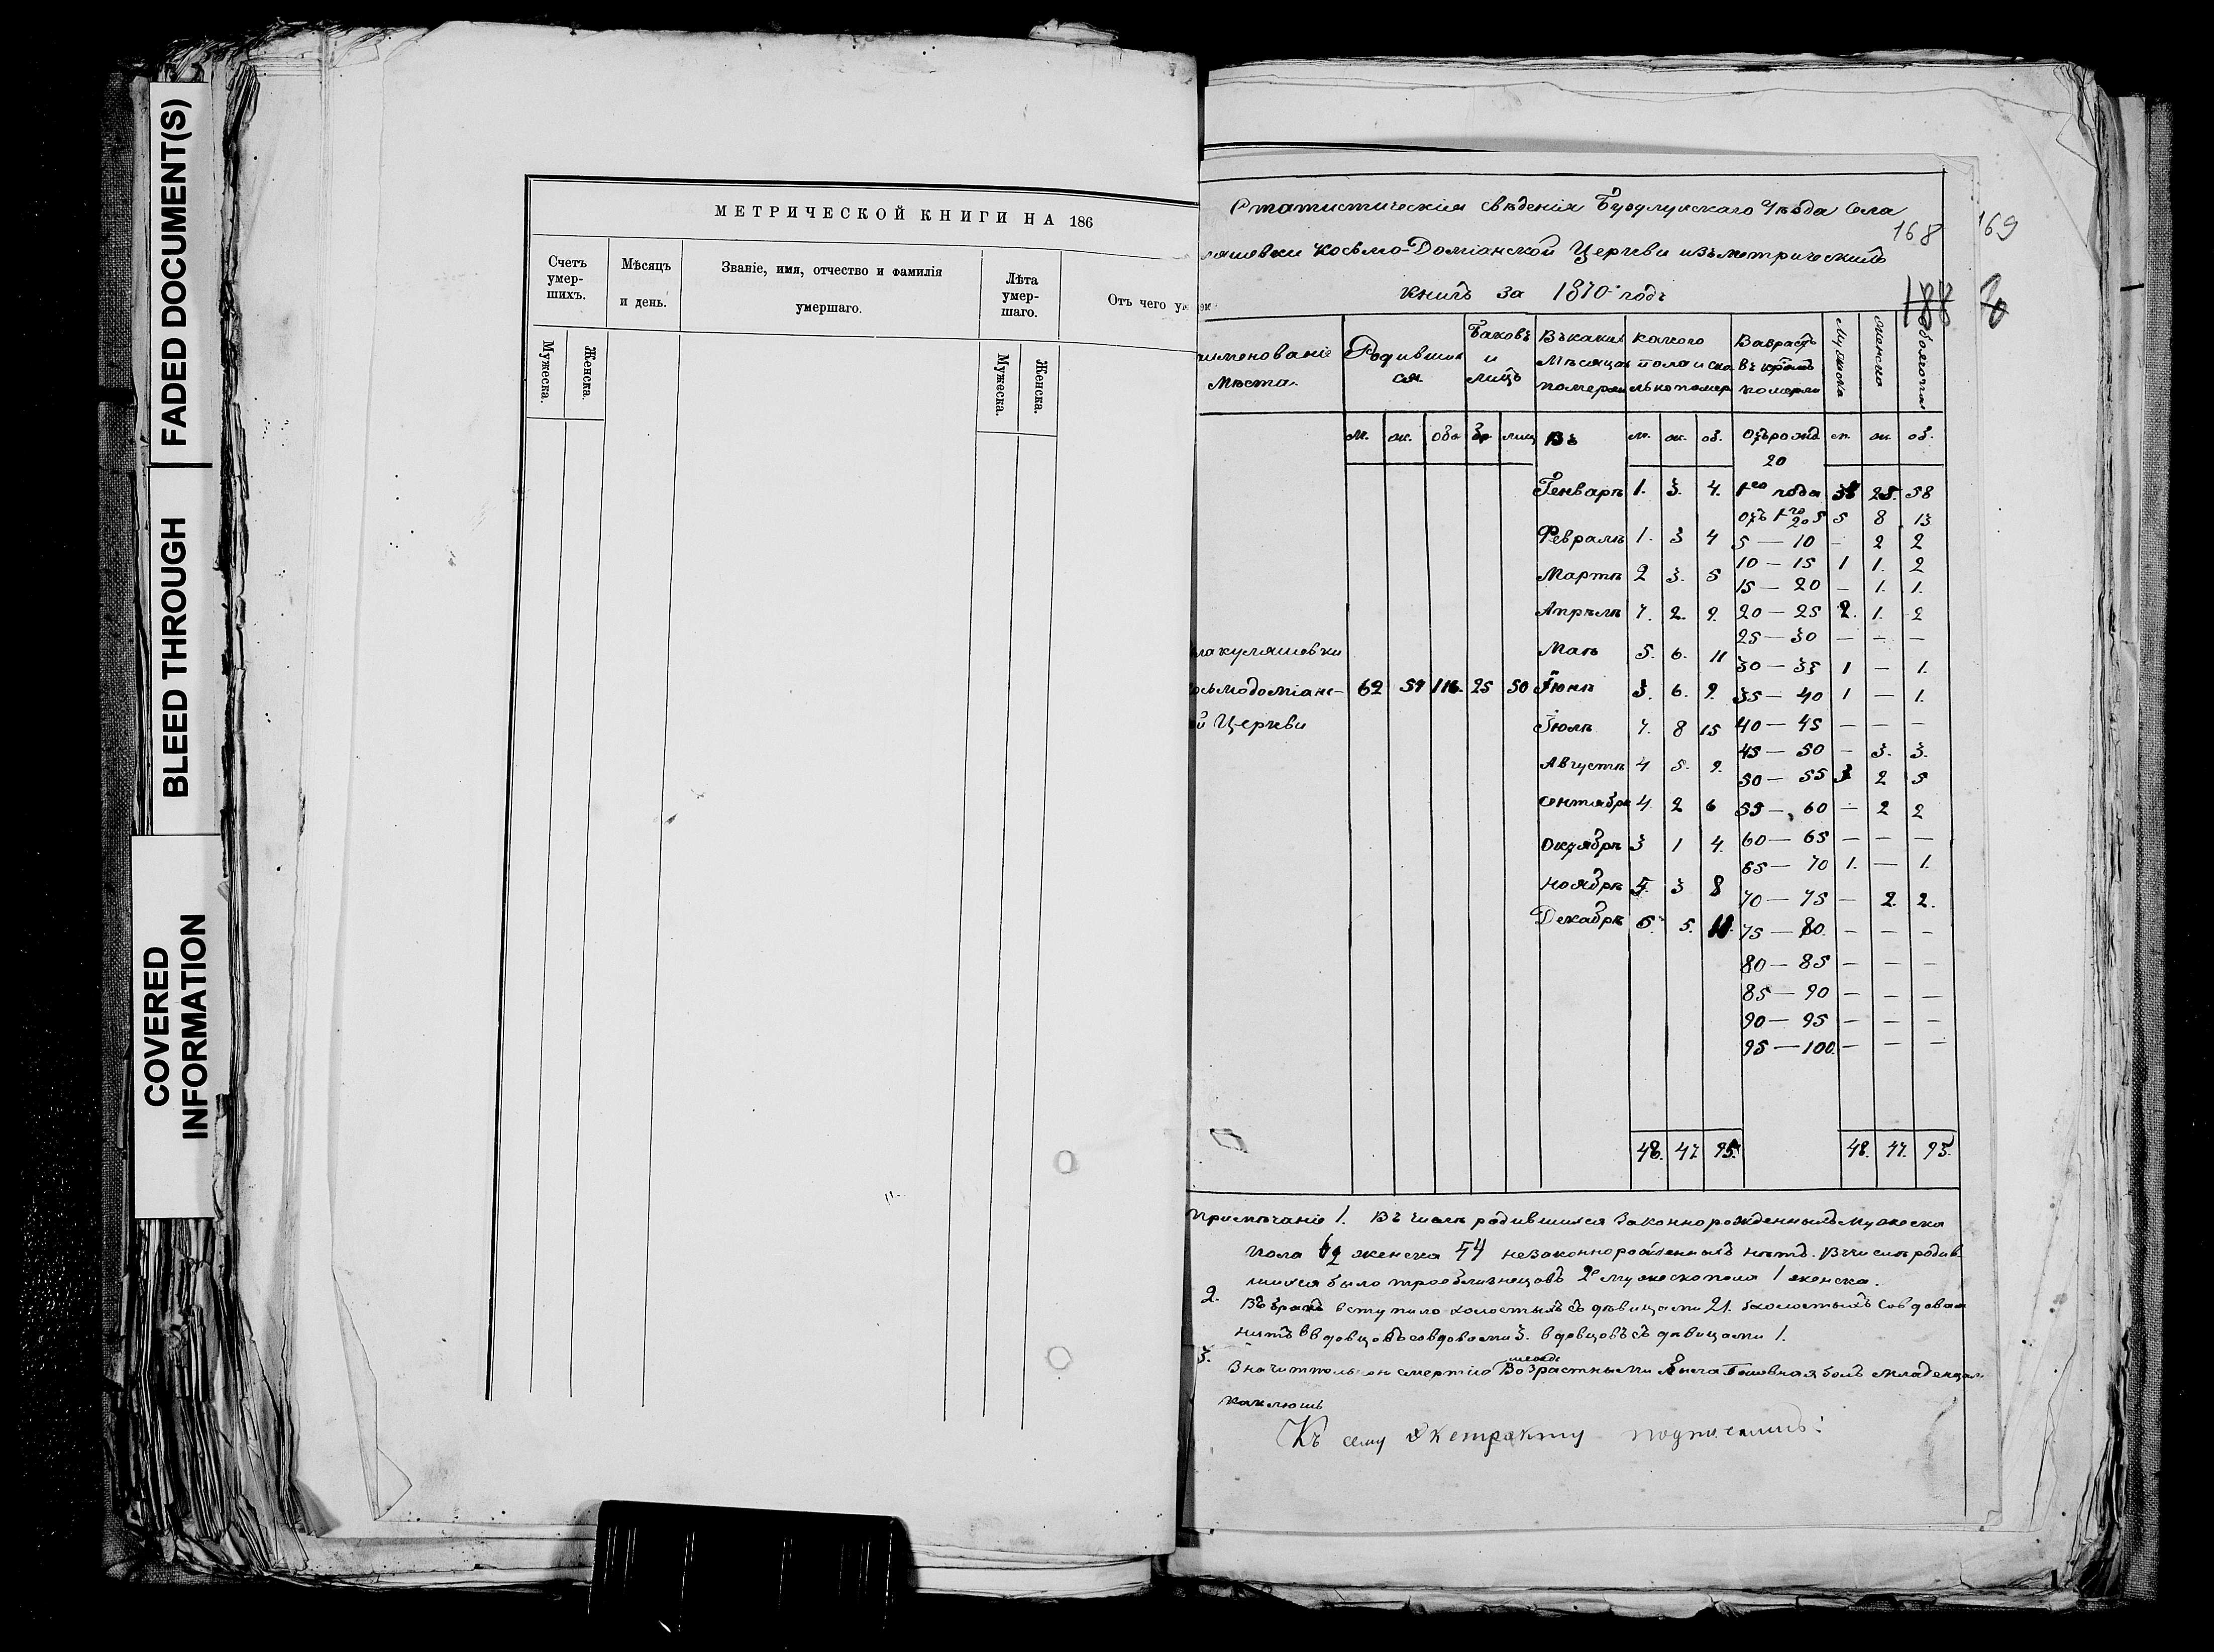 FADED DOCUMENT(S)
BLEED THROUGH
COVERED
INFORMATION
МЕТРИЧЕСКОЙ КНИГИ НА 186
Счетъ умер-шихъ.
Мѣсяцъ и день.
Званіе, имя, отчество и фамилія умершаго.
Лѣта умер-шаго.
Отъ чего ум
Мужеска.
Женска.
Мужеска.
Женска.
Статистическія свѣденія Бузулукскаго Уѣзда Села
168 169
ляшовки Косьмо-Доміанской Церкви изъ метрическихъ
книгъ за 1870 годъ
188
именованіе мѣста.
Родившихся
Браковъ и лицъ
Въ какихъ мѣсяцахъ померли
какого пола и сколько померло
Возрастъ въ коемъ померли
Мужеска
Женска
Обоего пола
м. ж. обо бр лиц Въ м. ж. об. отъ рожд. м. ж. об.
20
Генварѣ 1. 3. 4. 1го года 33 25. 58
отъ 1го до 5 5 8 13
Февралѣ 1. 3 4 5 — 10 — 2 2
10 — 15 1 1. 2
Мартѣ 2 3. 5 15 — 20 — 1. 1.
Апрѣлѣ 7. 2. 9. 20 — 25 2. 1. 2
25 — 30 — — —
лакуляшовки Маѣ 5. 6. 11
30 — 35 1 — 1.
осьмодоміанс- 62 54 116. 25 50 Іюнѣ 3. 6. 9. 35 — 40 1 — 1.
й Церкви Іюлѣ 7. 8 15 40 — 45 — — —
45 — 50 — 3. 3.
Августѣ 4 5. 9. 50 — 55 3 2 5
Сентябрѣ 4. 2 6 55 — 60 — 2 2
Октябрѣ 3 1 4. 60 — 65 — — —
65 — 70 1. — 1.
Ноябрѣ 5. 3 8
70 — 75 — 2. 2.
Декабрѣ 6. 5. 11. 75 — 80. — — —
80 — 85 — — —
85 — 90 — — —
90 — 95 — — —
95 — 100. — — —
48. 47 95. 48. 47. 95.
Примѣчаніе 1. Въ числѣ родившихся законнорожденныхъ мужеска
пола 62 женска 54 незаконнорожденныхъ нѣтъ. В числѣ родив
шихся было трое близнецовъ 2е мужеско пола 1 женска.
2. Въ бракъ вступило холостыхъ съ дѣвицами 21. холостыхъ со вдовам
нѣтъ вдовцовъ со вдовами 3. вдовцовъ съ дѣвицами 1.
3. смертію возрастными была головная боль младенцам
коклюшь
Къ сему экстракту подписались: